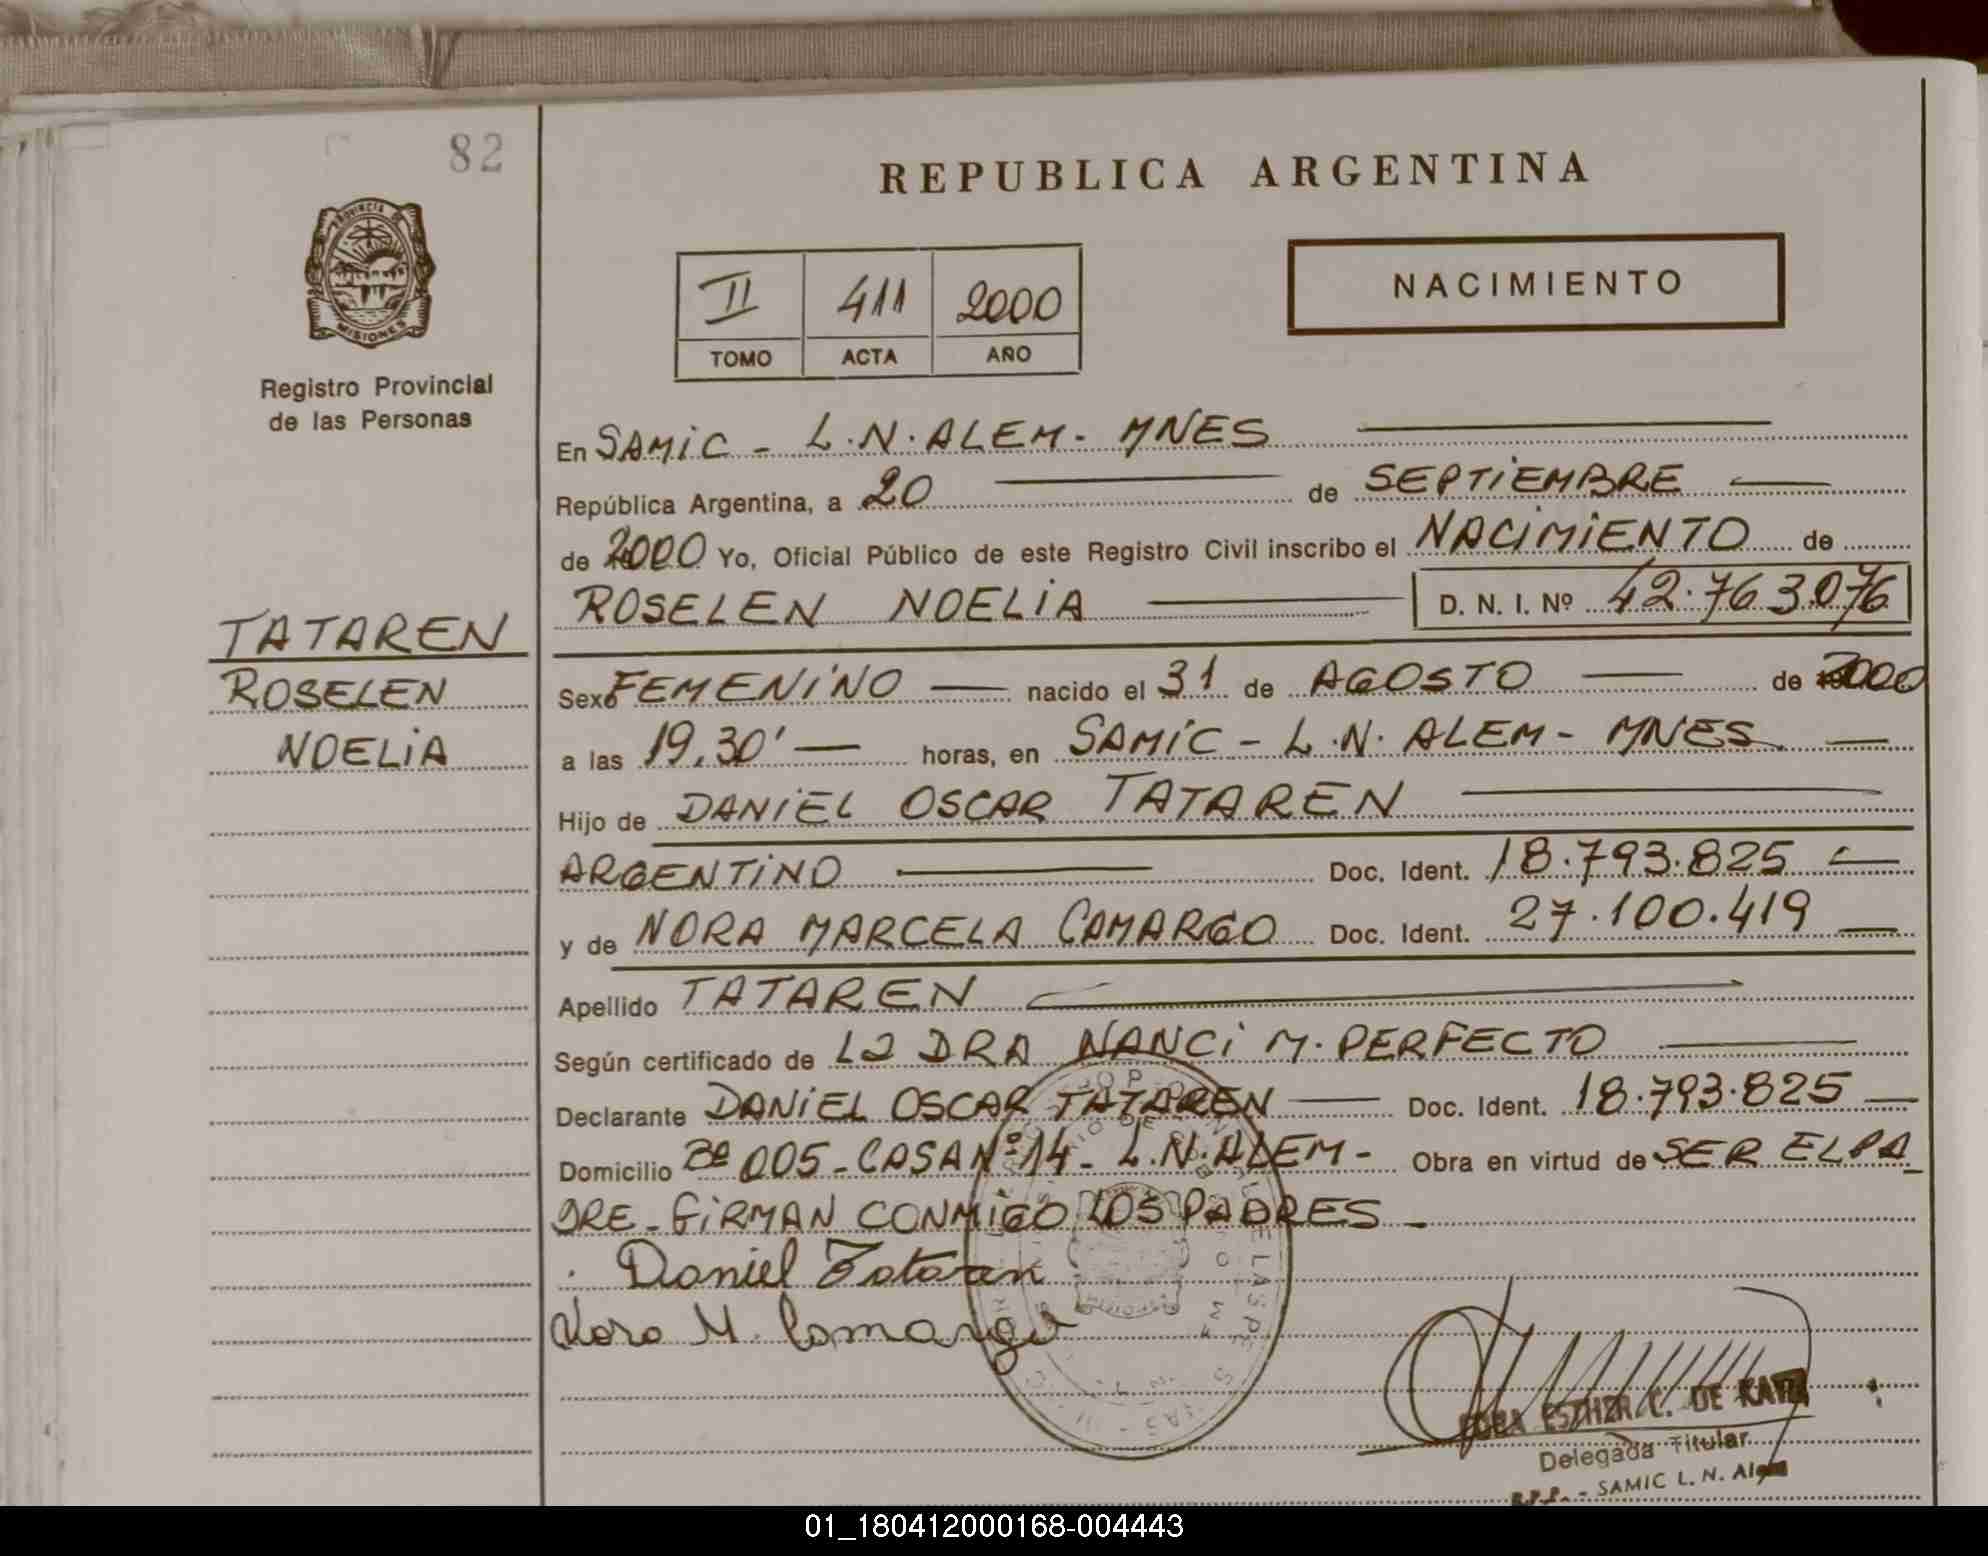 82
REPUBLICA ARGENTINA
PROVINCIA DE
MISIONES
Registro Provincial
de las Personas
II 411 2000
TOMO ACTA AÑO
NACIMIENTO
En SAMIC - L.N. ALEM - MNES
República Argentina, a 20 de SEPTIEMBRE
de 2000 Yo, Oficial Público de este Registro Civil inscribo el NACIMIENTO de
ROSELEN NOELIA D. N. I. Nº 42.763.076
TATAREN
ROSELEN
NOELIA
Sexo FEMENINO nacido el 31 de AGOSTO de 2000
a las 19,30' horas, en SAMIC - L.N. ALEM - MNES
Hijo de DANIEL OSCAR TATAREN
ARGENTINO Doc. Ident. 18.793.825
y de NORA MARCELA CAMARGO Doc. Ident. 27.100.419
Apellido TATAREN
Según certificado de LA DRA NANCI M. PERFECTO
Declarante DANIEL OSCAR TATAREN Doc. Ident. 18.793.825
Domicilio Bº 005 - CASA Nº 14 - L.N. ALEM - Obra en virtud de SER EL PA
DRE - FIRMAN CONMIGO LOS PADRES -
Daniel Tataren
Nora M. Camargo
ESTHER C. DE KATZ
Delegada Titular
R.P.P. - SAMIC L. N. Alem
01_180412000168-004443